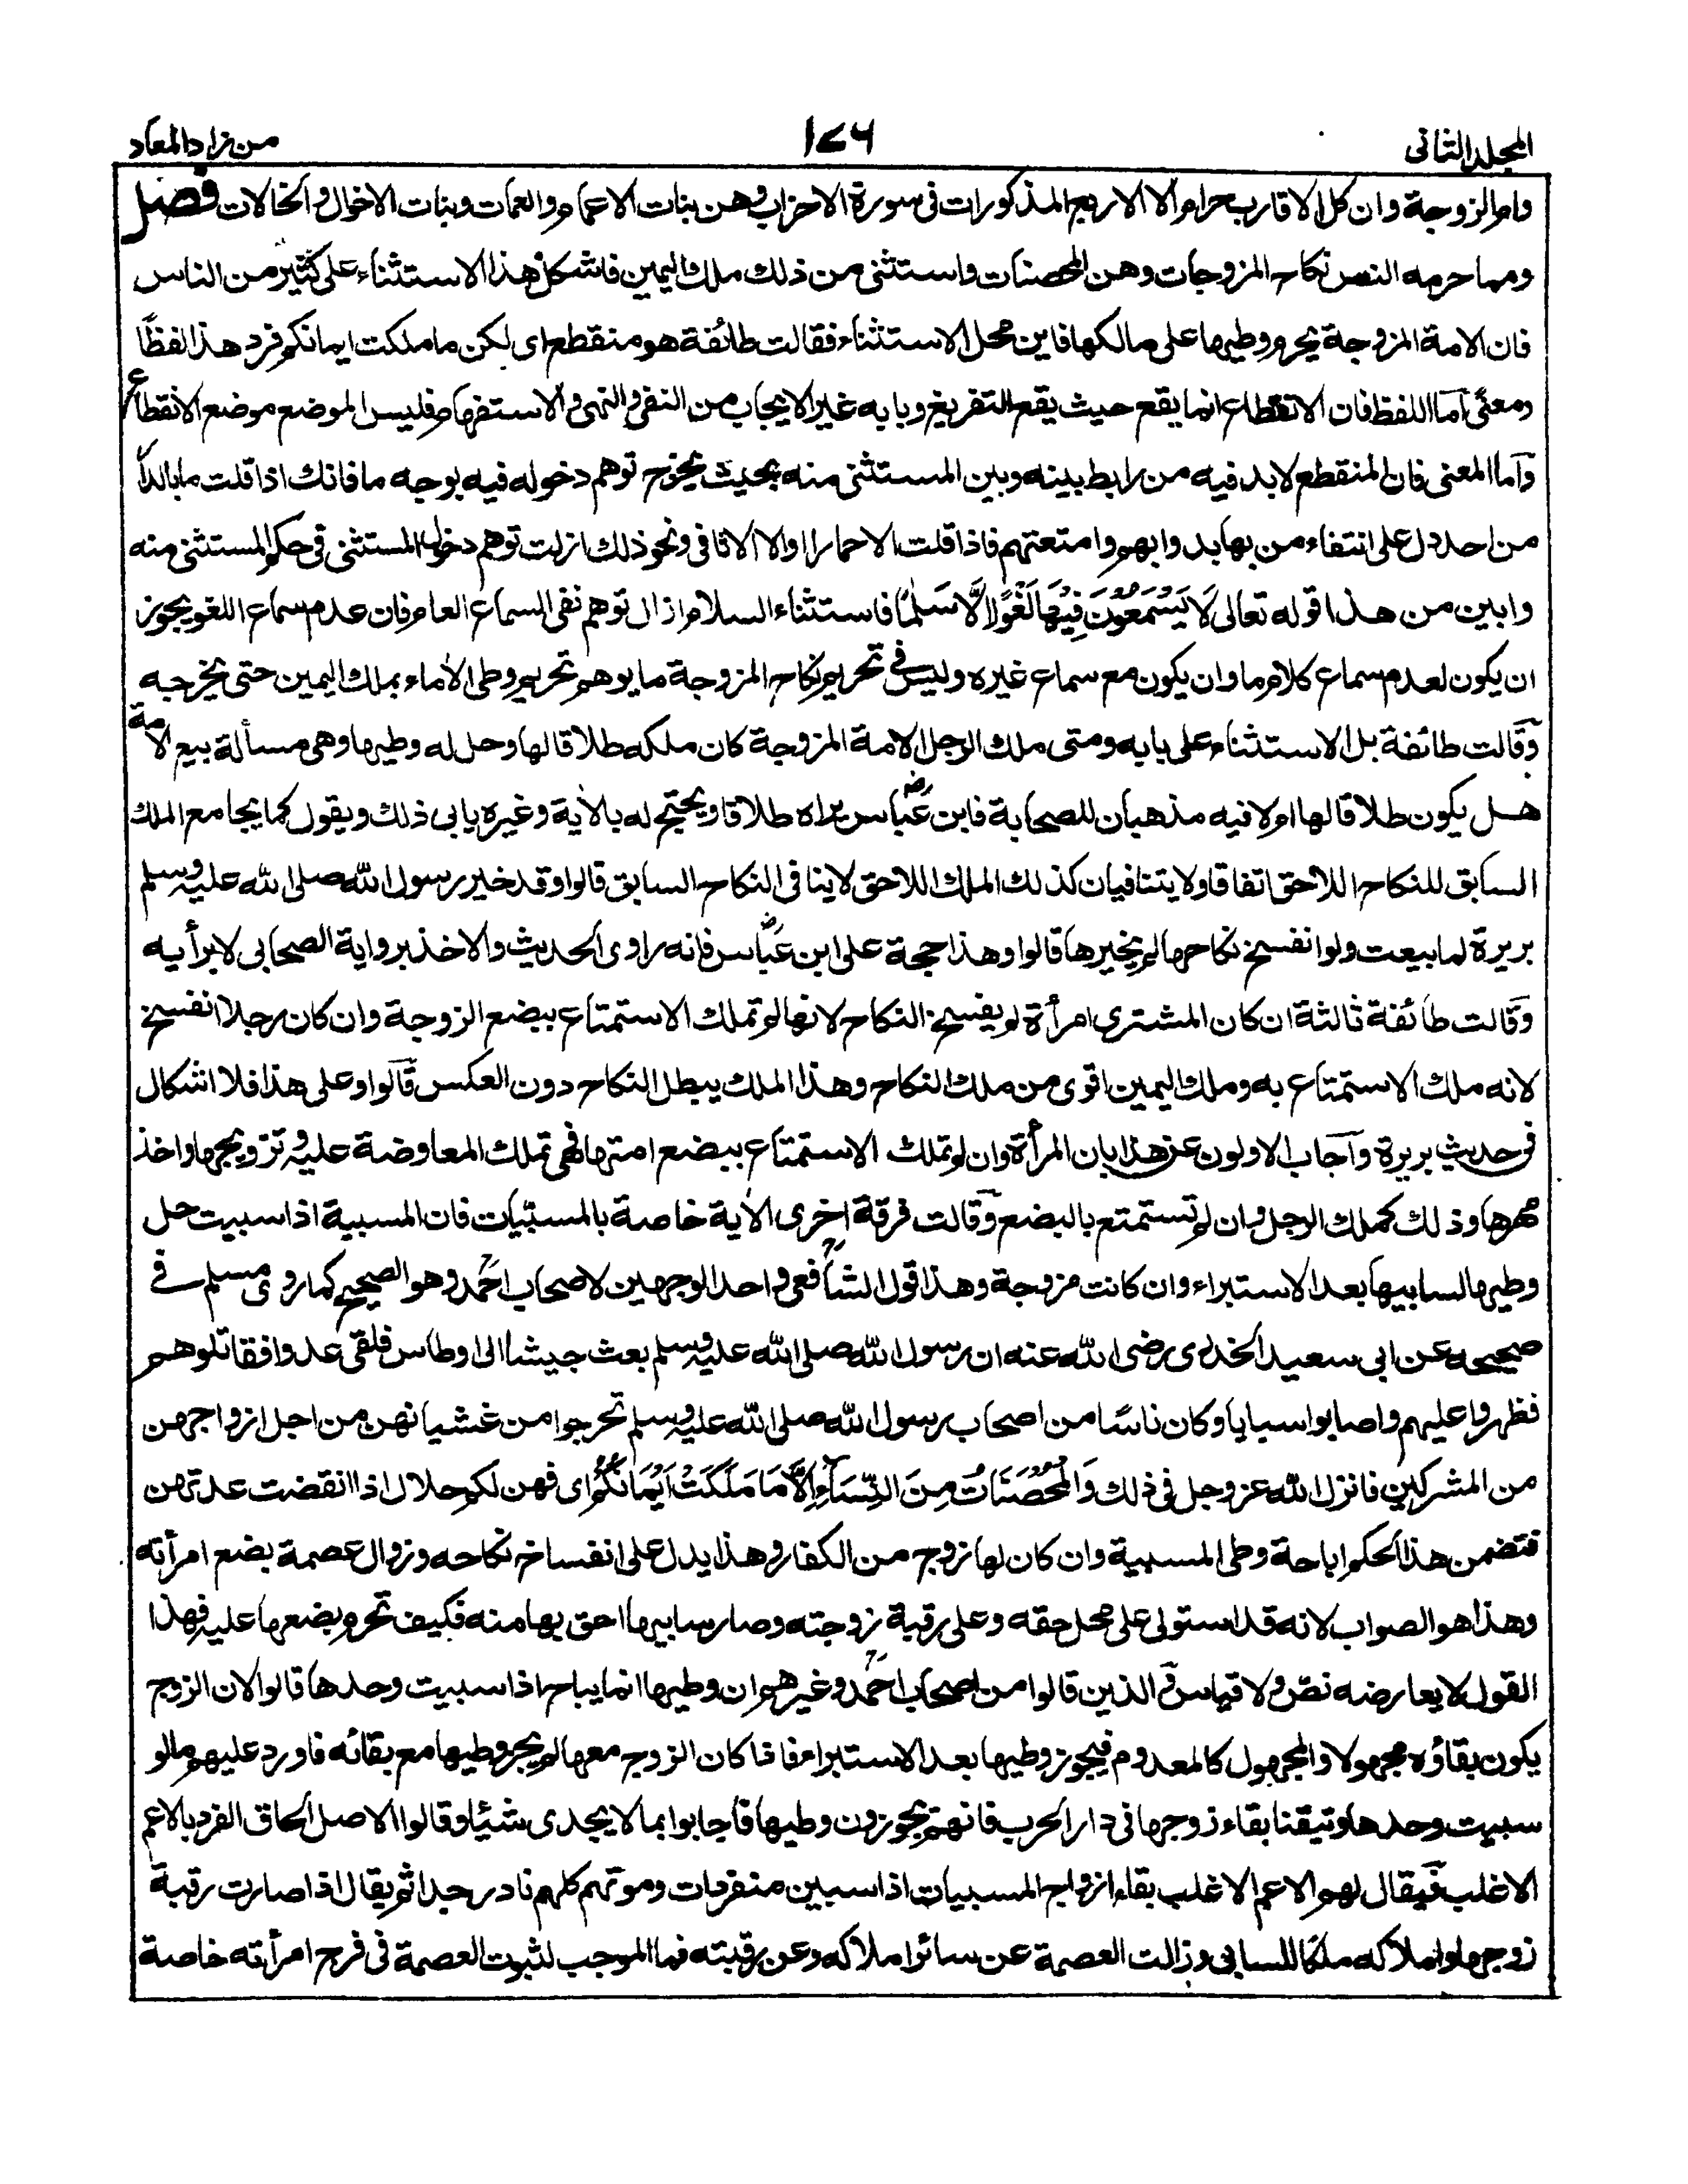 المجلد الثانى
١٧٦
من زاد المعاد
وام الزوجة وان كل الاقارب حرام الا الاربع المذكورات فى سورة الاحزاب وهن بنات الاعمام والعمات وبنات الاخوال والخالات فصل
ومما حرمه النص نكاح المزوجات وهن المحصنات واستثنى من ذلك ملك اليمين فاشكل هذا الاستثناء على كثير من الناس
فان الامة المزوجة يحرم وطيها على مالكها فاين محل الاستثناء فقالت طائفة هو منقطع اى لكن ما ملكت ايمانكم فرد هذا لفظًا
ومعنًى اما اللفظ فان الانقطاع انما يقع حيث يقع التفريغ وبابه غير الايجاب من النفى والنهى والاستفهام فليس الموضع موضع الانقطاع
وأما المعنى فان المنقطع لابد فيه من رابط بينه وبين المستثنى منه بحيث يخرج توهم دخوله فيه بوجه ما فانك اذا قلت ما بالدار
من احد دل على انتفاء من بها بدوابهم وامتعتهم فاذا قلت الا حمارا او الا الاثافى ونحو ذلك ازلت توهم دخول المستثنى فى حكم المستثنى منه
وابين من هذا قوله تعالى لَا يَسْمَعُوْنَ فِيْهَا لَغْوًا اِلَّا سَلٰمًا فاستثناء السلام ازال توهم نفى السماع العام فان عدم سماع اللغو يجوز
ان يكون لعدم سماع كلام ما وان يكون مع سماع غيره وليس فى تحريم نكاح المزوجة ما يوهم تحريم وطى الأماء بملك اليمين حتى يخرجه
وقالت طائفة بل الاستثناء على بابه ومتى ملك الرجل الامة المزوجة كان ملكه طلاقا لها وحل له وطيها وهى مسألة بيع الامة
هل يكون طلاقا لها ام لا فيه مذهبان للصحابة فابن عباس رض يراه طلاقا ويحتج له بالأية وغيره يابى ذلك ويقول كما يجامع الملك
السابق للنكاح اللاحق اتفاقا ولا يتنافيان كذلك الملك اللاحق لاينافى النكاح السابق قالوا وقد خير رسول الله صلى الله عليه وسلم
بريرة لما بيعت ولو انفسخ نكاحها لم يخيرها قالوا وهذا حجة على ابن عباس رض فانه راوى الحديث والاخذ برواية الصحابى لا برأيه
وقالت طائفة ثالثة ان كان المشترى امرأة لم يفسخ النكاح لانها لم تملك الاستمتاع ببضع الزوجة وان كان رجلا انفسخ
لانه ملك الاستمتاع به وملك اليمين اقوى من ملك النكاح وهذا الملك يبطل النكاح دون العكس قالوا وعلى هذا فلا اشكال
فى حديث بريرة وأجاب الاولون عن هذا بان المرأة وان لم تملك الاستمتاع ببضع امتها فهى تملك المعاوضة عليه وتزويجها واخذ
مهرها وذلك كملك الرجل وان لم تستمتع بالبضع وقالت فرقة اخرى الأية خاصة بالمسبيات فان المسبية اذا سبيت حل
وطيها لسابيها بعد الاستبراء وان كانت مزوجة وهذا قول الشافعى واحد الوجهين لاصحاب احمد وهو الصحيح كما روى مسلم فى
صحيحه عن ابى سعيد الخدرى رضى الله عنه ان رسول الله صلى الله عليه وسلم بعث جيشا الى اوطاس فلقى عدوا فقاتلوهم
فظهروا عليهم واصابوا سبايا وكان ناسًا من اصحاب رسول الله صلى الله عليه وسلم تحرجوا من غشيانهن من اجل ازواجهن
من المشركين فانزل الله عز وجل فى ذلك وَالْمُحْصَنَاتُ مِنَ النِّسَآءِ اِلَّا مَا مَلَكَتْ اَيْمَانُكُمْ اى فهن لكم حلال اذا انقضت عدتهن
فتضمن هذا الحكم اباحة وطى المسبية وان كان لها زوج من الكفار وهذا يدل على انفساخ نكاحه وزوال عصمة بضع امرأته
وهذا هو الصواب لانه قد استولى على محل حقه وعلى رقبة زوجته وصار سابيها احق بها منه فكيف تحرم بضعها عليه فهذا
القول لا يعارضه نص ولا قياس والذين قالوا من اصحاب احمد وغيرهم ان وطيها انما يباح اذا سبيت وحدها قالوا لان الزوج
يكون بقاؤه مجهولا والمجهول كالمعدوم فيجوز وطيها بعد الاستبراء فاذا كان الزوج معها لم يجز وطيها مع بقائه فاورد عليهم ما لو
سبيت وحدها وتيقنا بقاء زوجها فى دار الحرب فانهم يجوزون وطيها فأجابوا بما لا يجدى شيئا وقالوا الاصل الحاق الفرد بالاعم
الاغلب فيقال لهم الاعم الاغلب بقاء ازواج المسبيات اذا سبين منفردات وموتهم كلهم نادر جدا ثم يقال اذا صارت رقبة
زوجها واملاكه ملكا للسابى وزالت العصمة عن سائر املاكه وعن رقبته فما الموجب لثبوت العصمة فى فرج امرأته خاصة